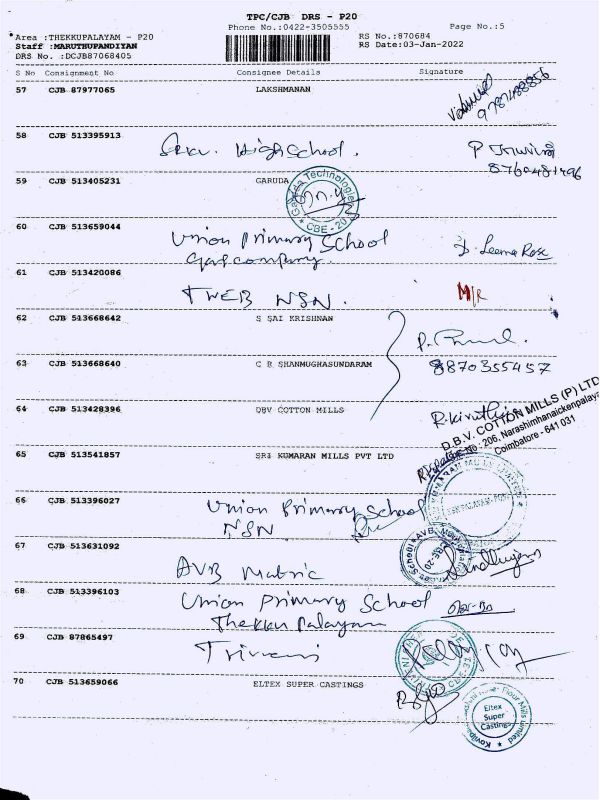 TPC/CJB DRS - P20
Phone No.:0422-3505555
Page No.:5
Area :THEKKUPALAYAM - P20
RS No.:870684
Staff :MARUTHUPANDIYAN
RS Date:03-Jan-2022
DRS No. :DCJB87068405
S No Consignment No Consignee Details Signature
57 CJB 87977065 LAKSHMANAN
9787488856
58 CJB 513395913 High School.
8760481496
59 CJB 513405231 GARUDA
Garuda Technologies CBE - 20
60 CJB 513659044 Union Primary School
Gas company.
J. Leema Rose
61 CJB 513420086 TWEB NSN. M/R
62 CJB 513668642 S SAI KRISHNAN
63 CJB 513668640 C B SHANMUGHASUNDARAM 8870355457
64 CJB 513428396 DBV COTTON MILLS R.Kiruthi
D.B.V. COTTON MILLS (P) LTD
206, Narashimhanaickenpalaya
Coimbatore - 641 031
65 CJB 513541857 SRI KUMARAN MILLS PVT LTD
66 CJB 513396027 Union Primary School
NSN
67 CJB 513631092
AVB Matric
68 CJB 513396103 Union Primary School
Thekku Palayam
69 CJB 87865497 Triveni
70 CJB 513659066 ELTEX SUPER CASTINGS
Flour Mills Limited
Eltex
Super
Castings